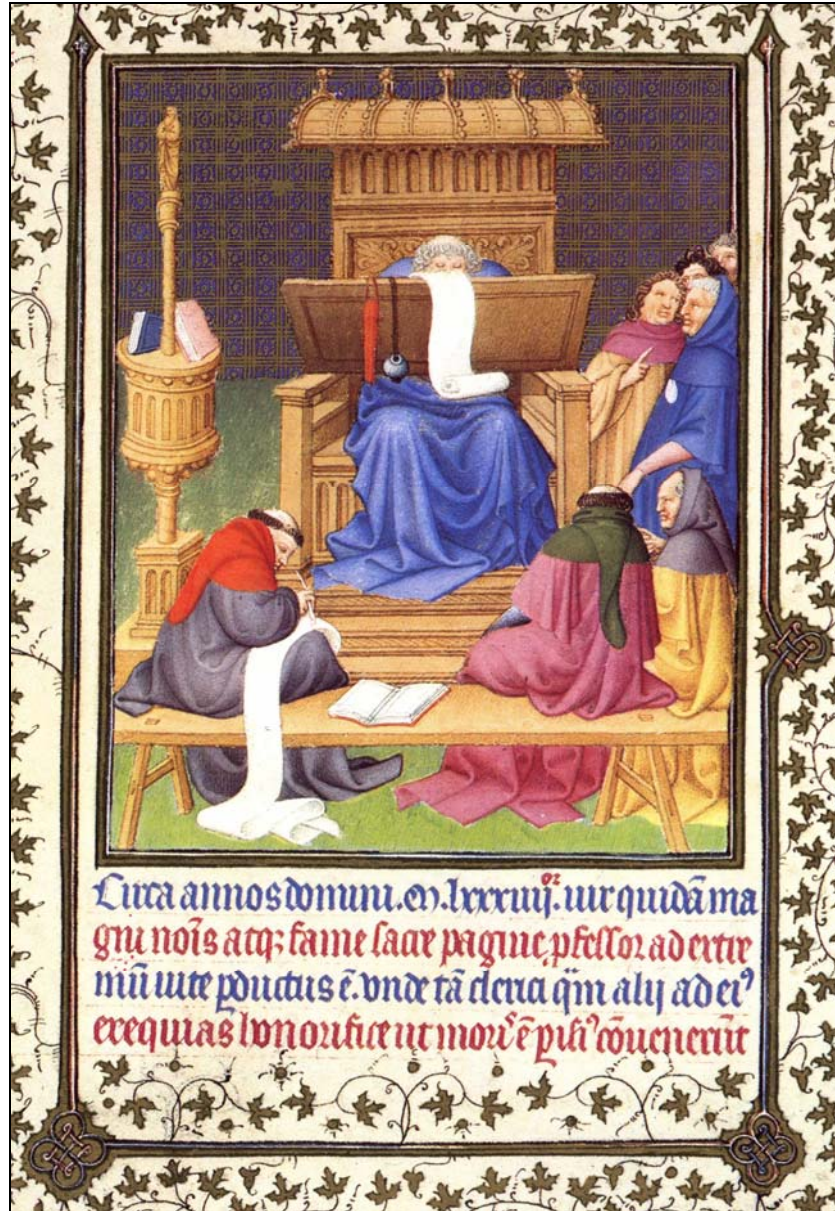 Circa annos domini. M. lxxxiiijor. uir quidã ma
gni nõis atq; fame sacre pagine, ꝓfessor ad extre
mũ uite ꝑductus ẽ. vnde tã clerici q̃m alij ad eiꝰ
exequias honorifice ut moris ẽ conuenerũt